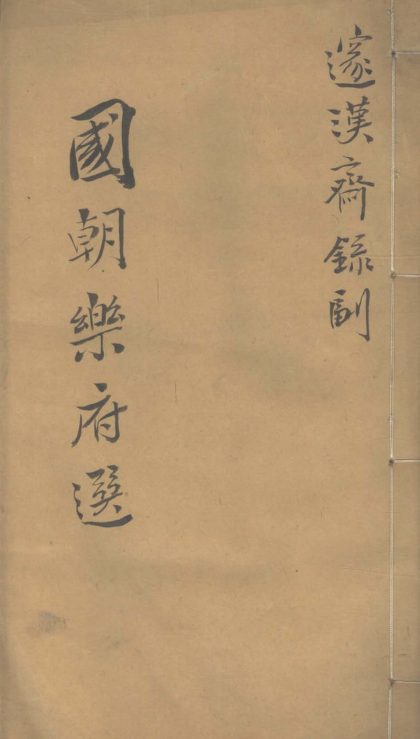 邃漢齋録副
國朝樂府選